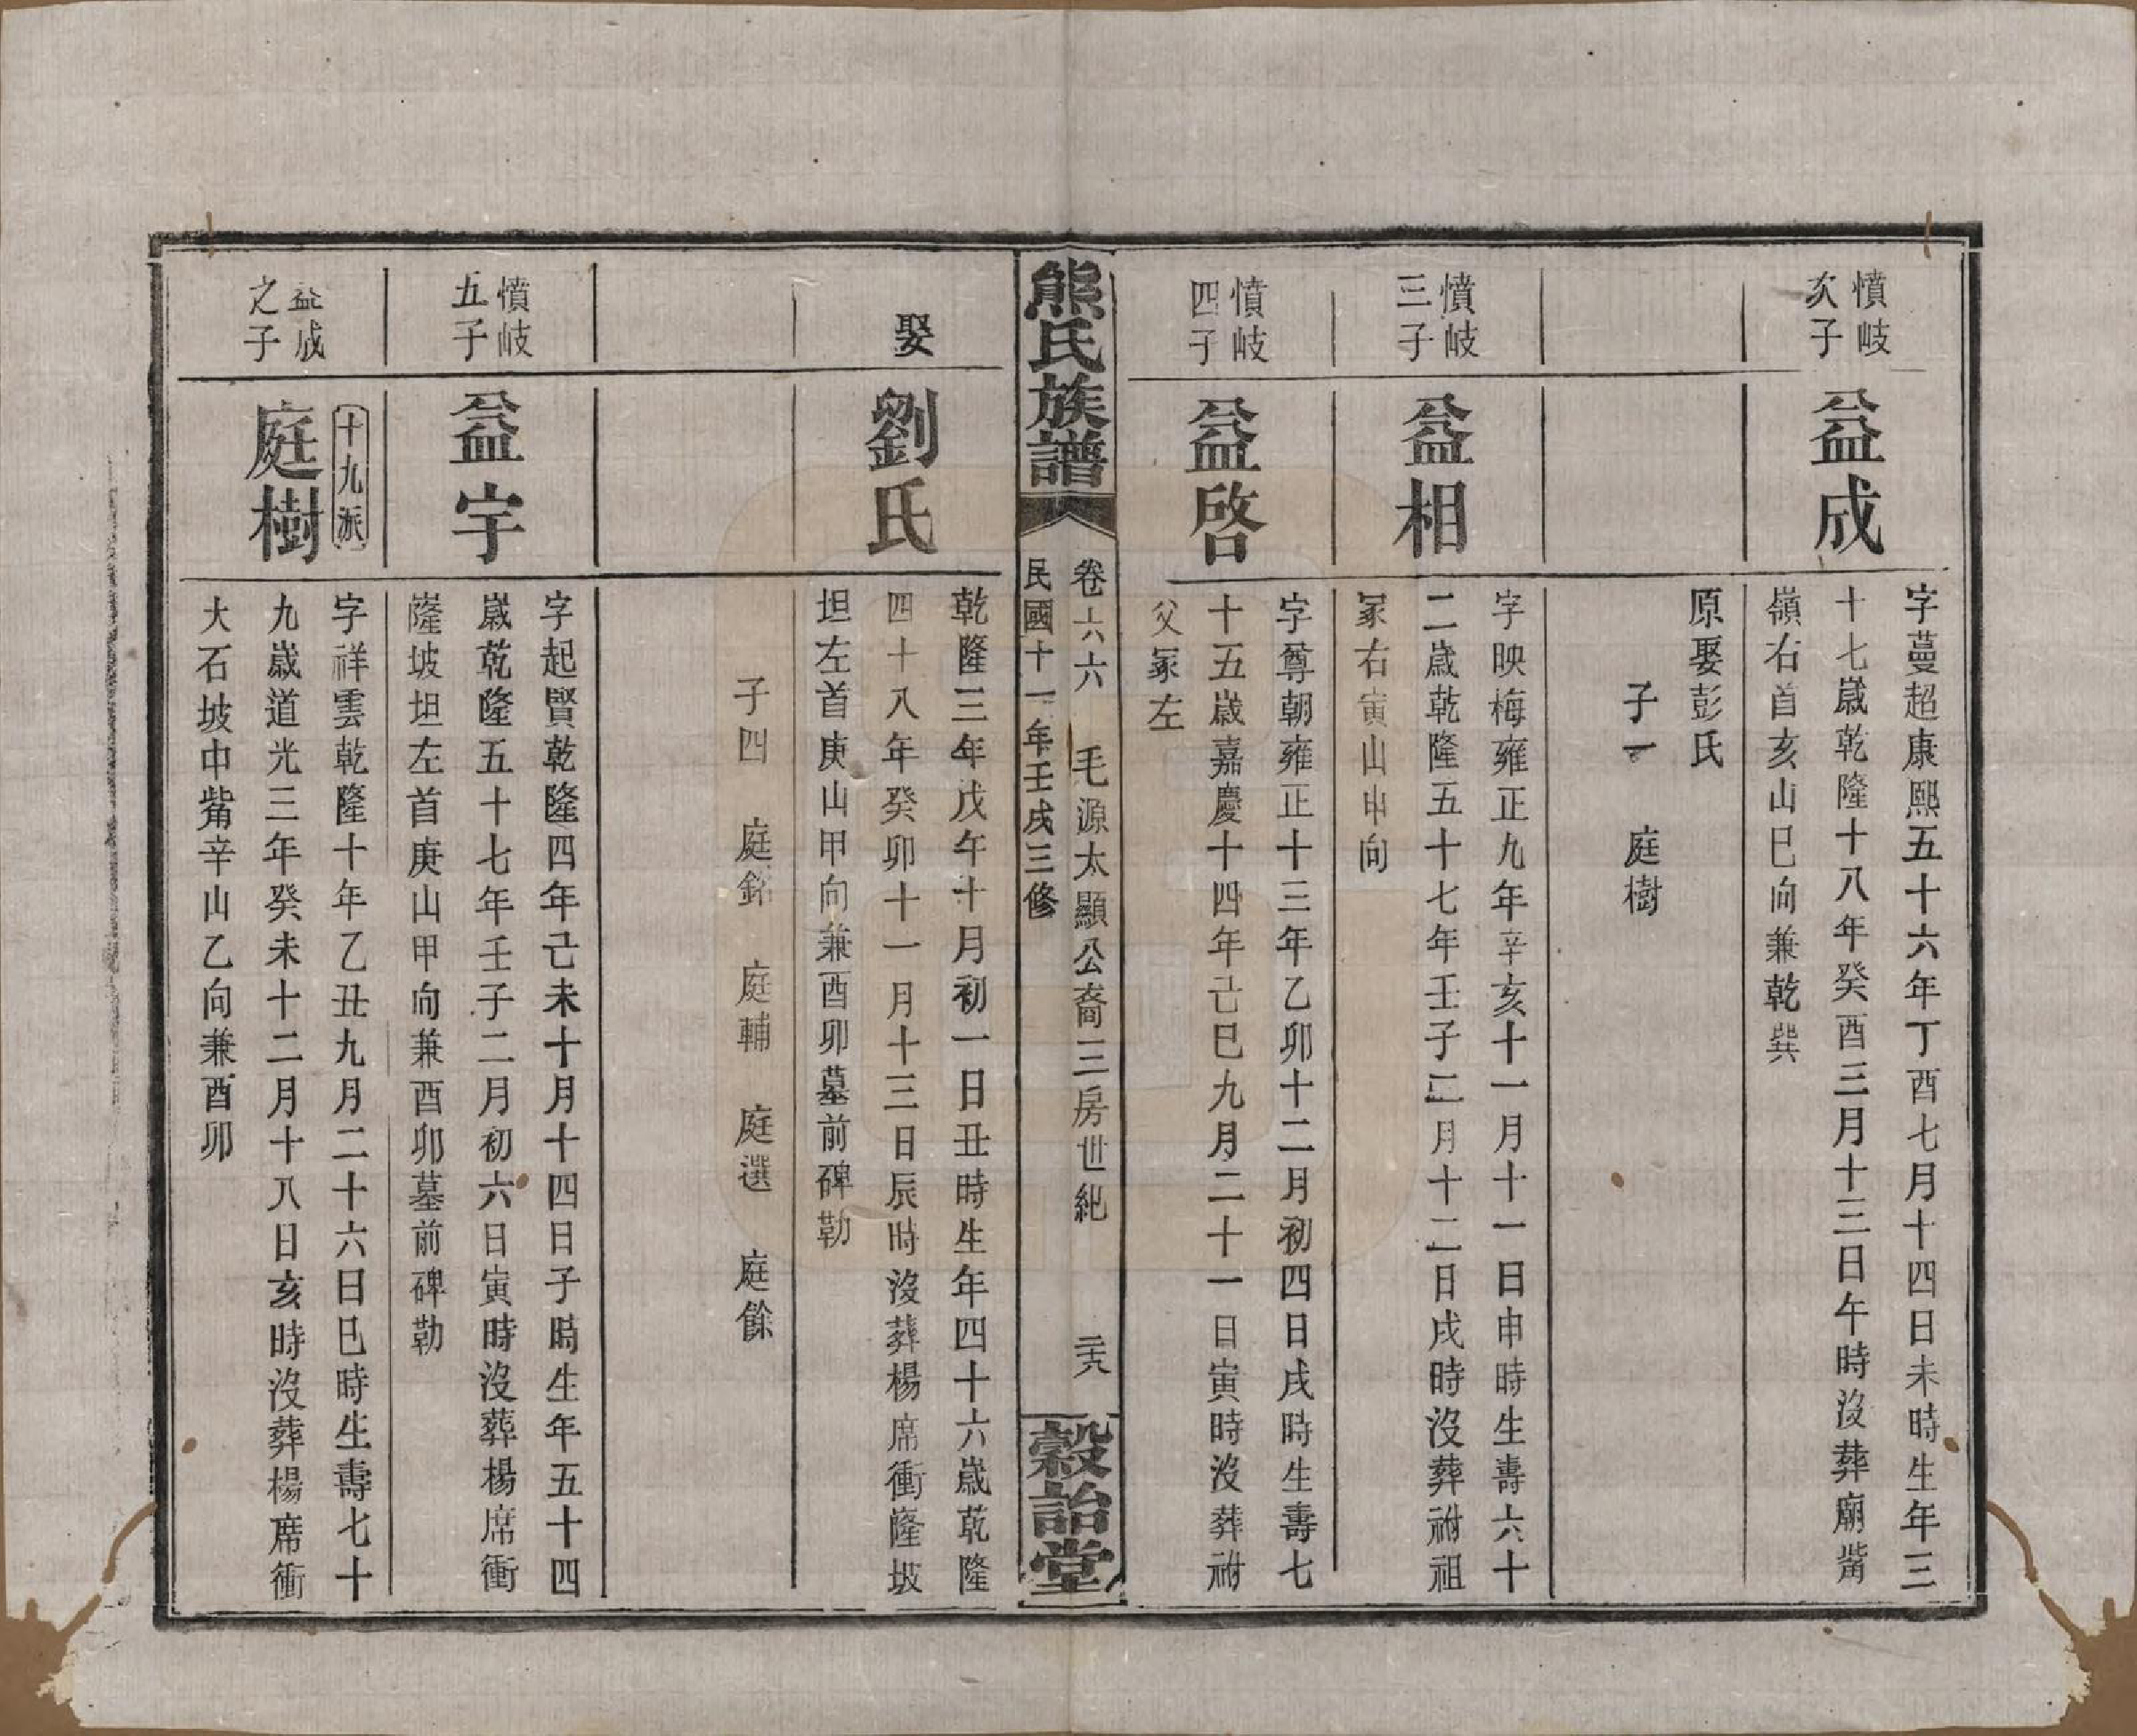 憤岐
次子
益成
字蔓超康熙五十六年丁酉七月十四日未時生年三
十七歲乾隆十八年癸酉三月十三日午時沒葬廟觜
嶺右首亥山巳向兼乾巽
原娶彭氏
子一　庭樹
憤岐
三子
益相
字映梅雍正九年辛亥十一月十一日申時生壽六十
二歲乾隆五十七年壬子二月十二日戌時沒葬祔祖
冢右寅山申向
憤岐
四子
益啓
字尊朝雍正十三年乙卯十二月初四日戌時生壽七
十五歲嘉慶十四年己巳九月二十一日寅時沒葬祔
父冢左
熊氏族譜
卷六六　毛源太顯公裔三房世紀　二十九
民國十一年壬戌三修
穀詒堂
娶
劉氏
乾隆三年戊午十月初一日丑時生年四十六歲乾隆
四十八年癸卯十一月十三日辰時沒葬楊席衝隆坡
坦左首庚山甲向兼酉卯墓前碑勒
子四　庭銘　庭輔　庭選　庭餘
憤岐
五子
益宇
字起賢乾隆四年己未十月十四日子時生年五十四
歲乾隆五十七年壬子二月初六日寅時沒葬楊席衝
隆坡坦左首庚山甲向兼酉卯墓前碑勒
益成
之子
十九派
庭樹
字祥雲乾隆十年乙丑九月二十六日巳時生壽七十
九歲道光三年癸未十二月十八日亥時沒葬楊席衝
大石坡中觜辛山乙向兼酉卯